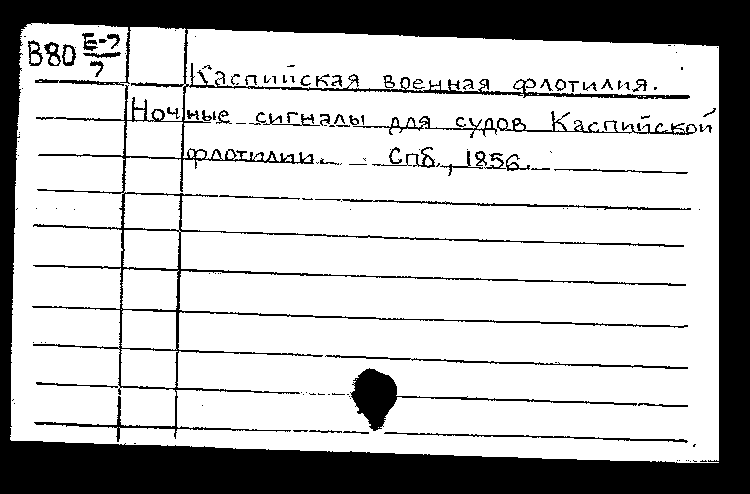 В80 Е-7/7
Каспийская военная флотилия.
Ночные сигналы для судов Каспийской
флотилии. Спб., 1856.